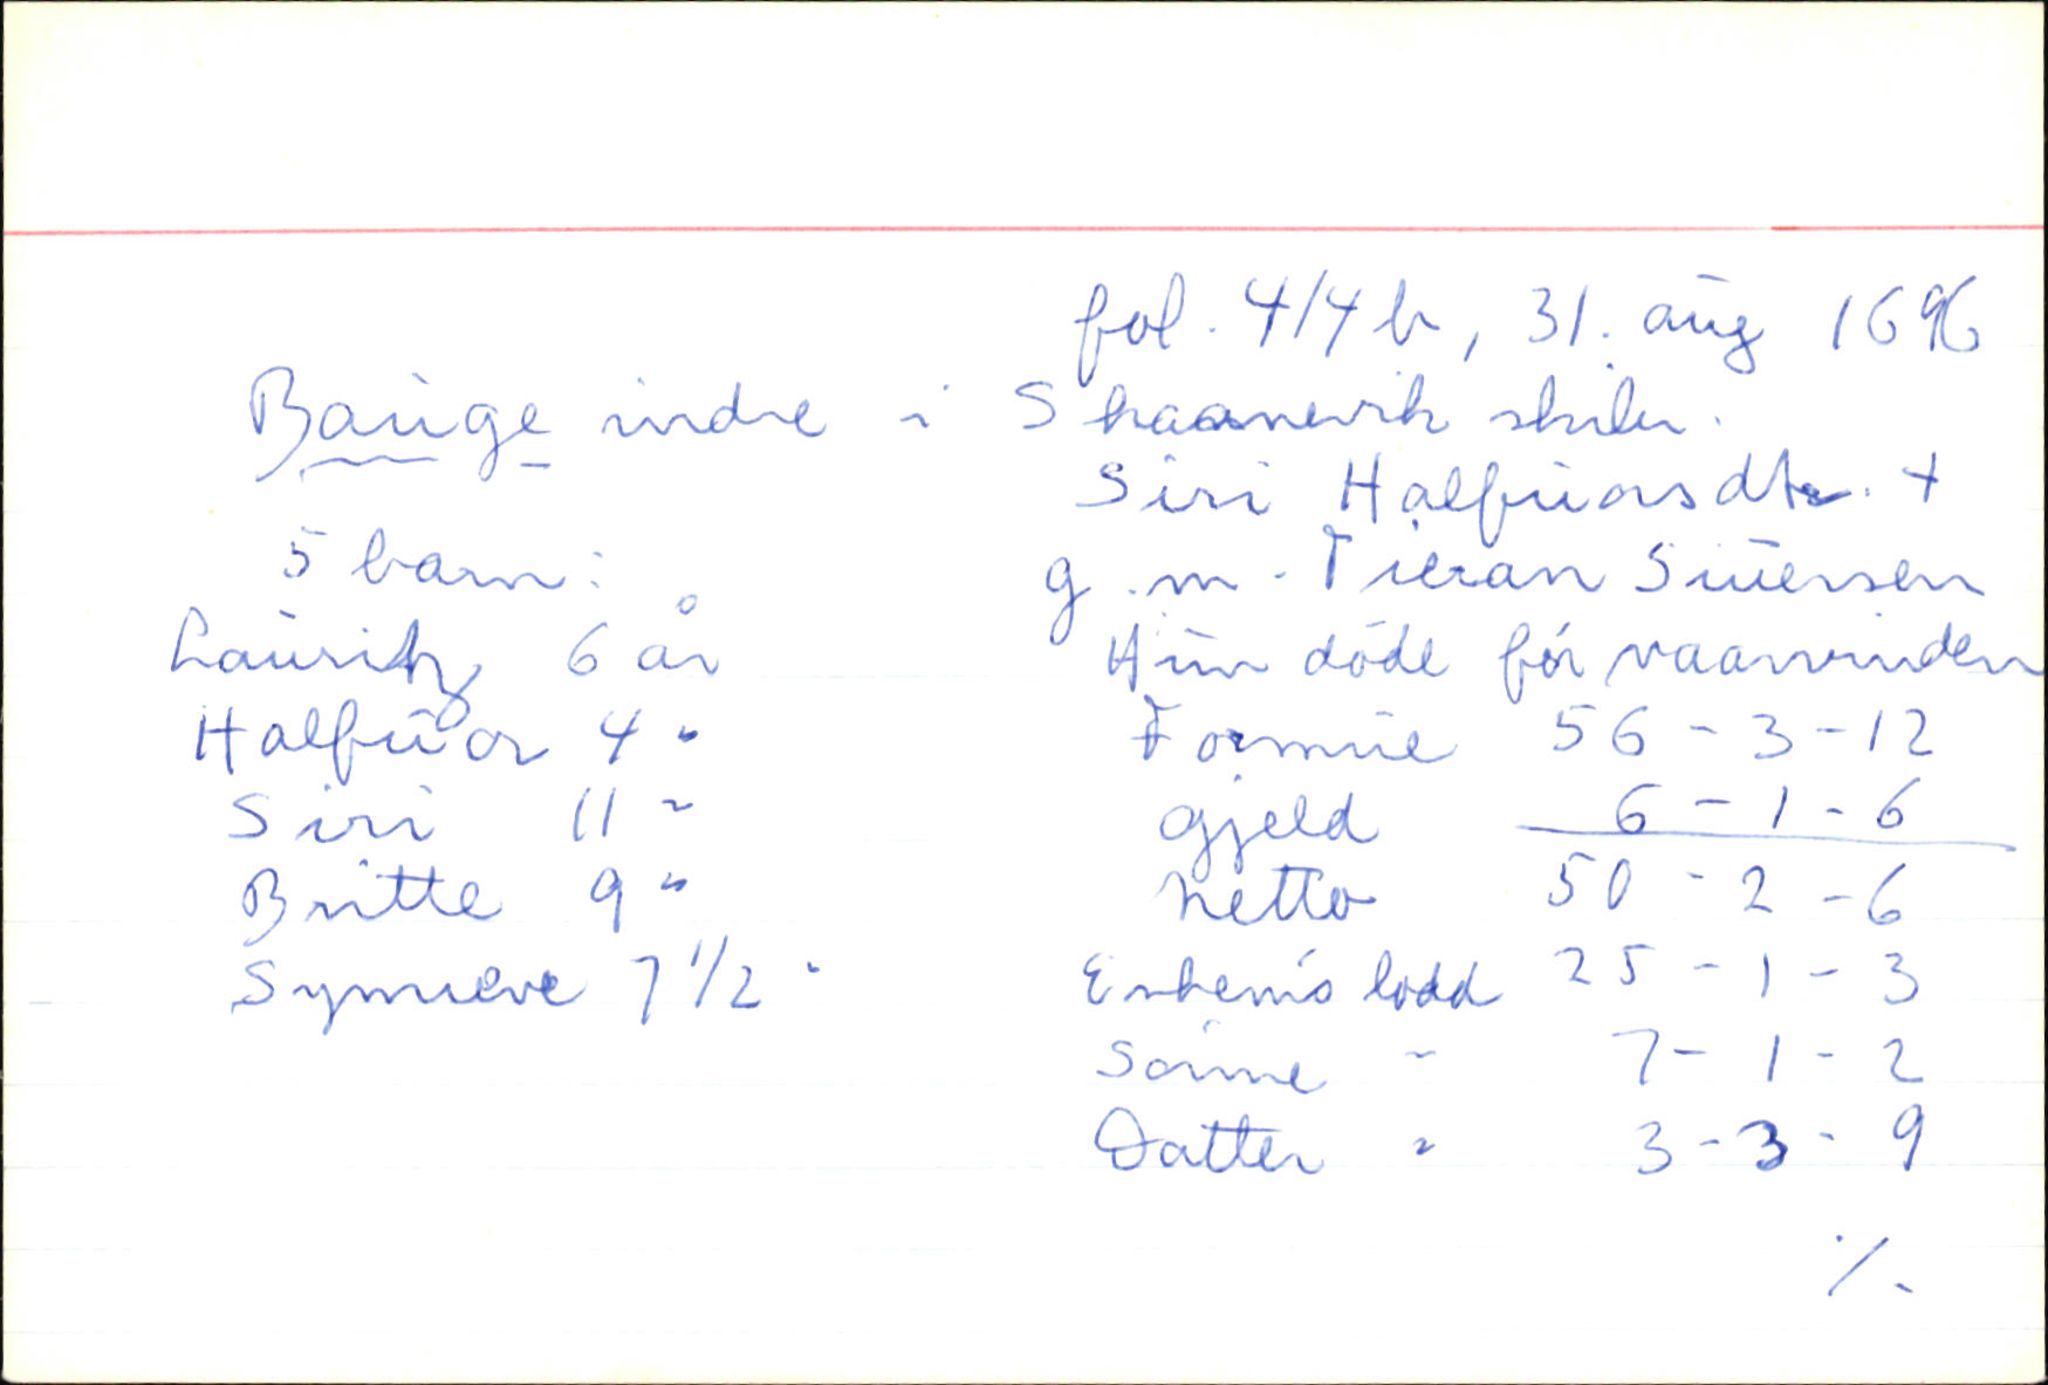 fol. 4/4 b, 31. aug 1696
Bauge indre i Skaanevik skibr.
Siri Halfuorsdtr. +
g.m. Tieran Siuersen
5 barn:
Hun døde før vaarvinden
Lauritz 6 år
Halfuor 4 "
Siri 11 "
Britte 9 "
Synneve 7 1/2 "
Formue 56 - 3 - 12
Gjeld 6 - 1 - 6
Netto 50 - 2 - 6
Enkem's lodd 25 - 1 - 3
Sønne " 7 - 1 - 2
Datter " 3 - 3 - 9
./.